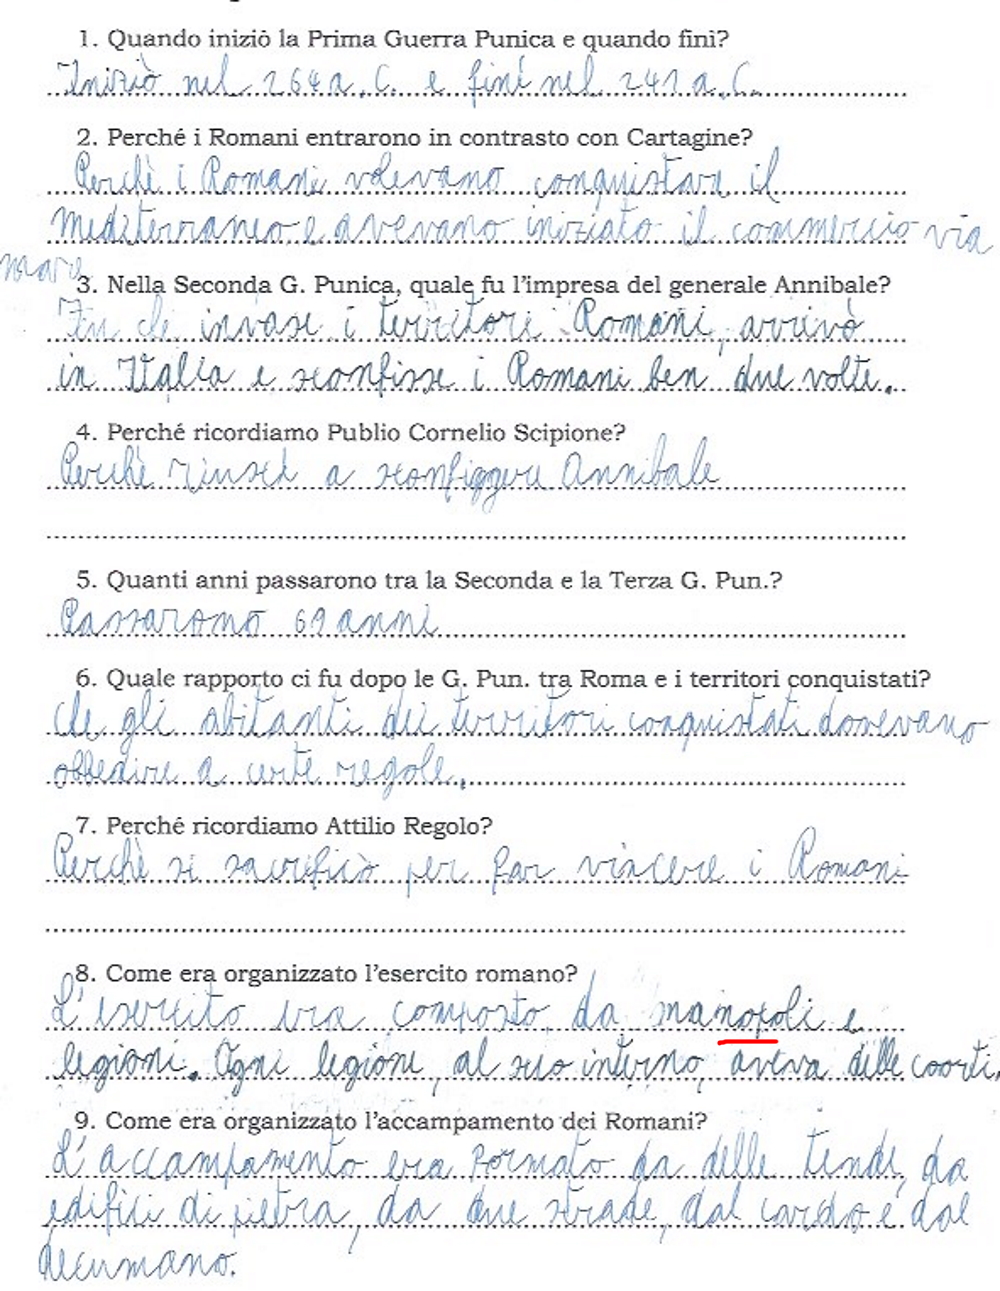 1. Quando iniziò la Prima Guerra Punica e quando finì?
Iniziò nel 264 a.C. e finì nel 241 a.C.
2. Perché i Romani entrarono in contrasto con Cartagine?
Perchè i Romani volevano conquistare il
Mediterraneo e avevano iniziato il commercio via
mare
3. Nella Seconda G. Punica, quale fu l'impresa del generale Annibale?
Fu che invase i territori Romani, arrivò
in Italia e sconfisse i Romani ben due volte.
4. Perché ricordiamo Publio Cornelio Scipione?
Perchè riuscì a sconfiggere Annibale
5. Quanti anni passarono tra la Seconda e la Terza G. Pun.?
Passarono 69 anni
6. Quale rapporto ci fu dopo le G. Pun. tra Roma e i territori conquistati?
Che gli abitanti dei territori conquistati dovevano
obbedire a certe regole.
7. Perché ricordiamo Attilio Regolo?
Perchè si sacrificò per far vincere i Romani
8. Come era organizzato l'esercito romano?
L'esercito era composto da manopoli e
legioni. Ogni legione, al suo interno, aveva delle coorti.
9. Come era organizzato l'accampamento dei Romani?
L'accampamento era formato da delle tende, da
edifici di pietra, da due strade, dal cardo e dal
decumano.